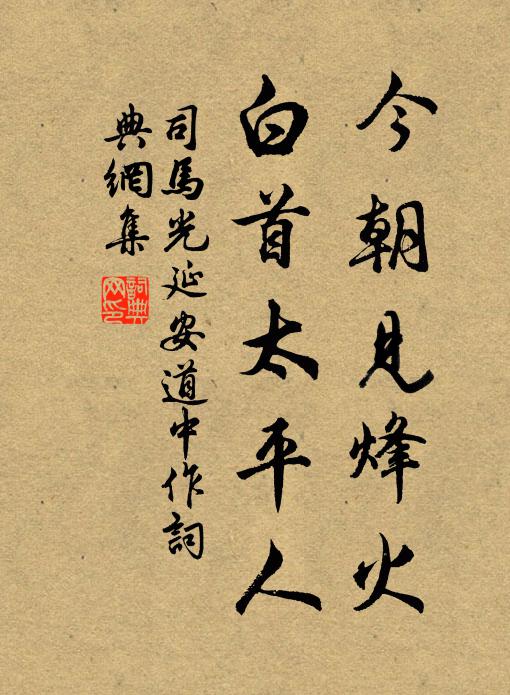 今朝見烽火
白首太平人
司馬光延安道中作詞
典網集
詞典
网印